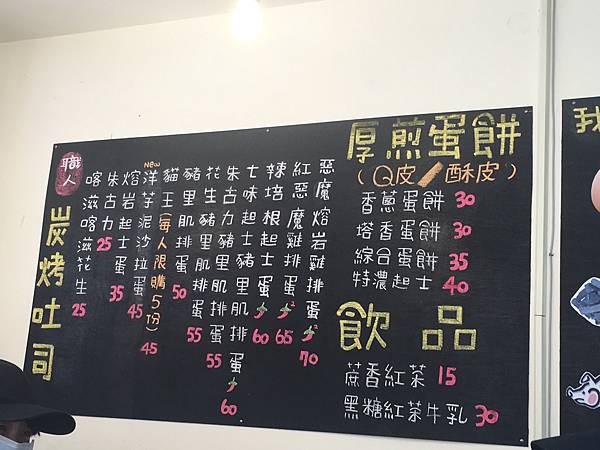 職人
炭烤吐司
喀滋喀滋花生 25
朱古力 25
熔岩起士蛋 35
New 洋芋泥沙拉蛋 45
貓王(每人限購5份) 45
豬里肌排蛋 50
花生豬里肌排蛋 55
朱古力豬里肌排蛋 55
七味起士豬里肌排蛋 60
辣培根起士蛋 60
紅惡魔雞排蛋 65
惡魔熔岩雞排蛋 70
厚煎蛋餅
(Q皮/酥皮)
香蔥蛋餅 30
塔香蛋餅 30
綜合蛋餅 35
特濃起士 40
飲品
蔗香紅茶 15
黑糖紅茶牛乳 30
我